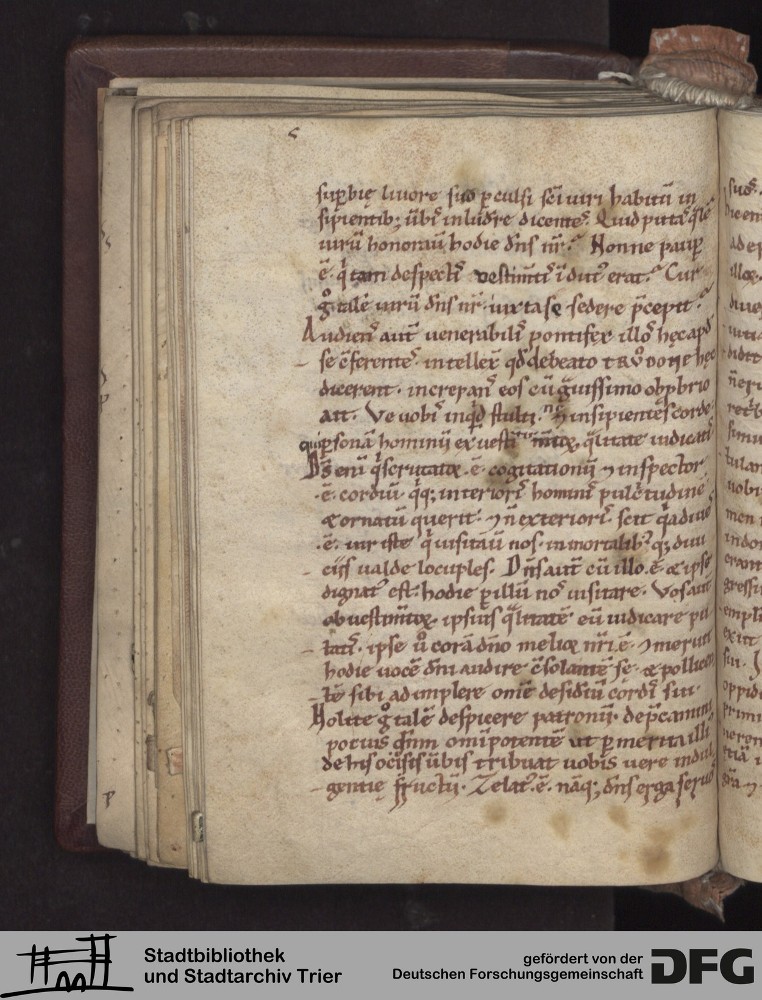 suꝑbię liuore suo ꝑculsi sc̄i uiri habitū in
sipientib; ūbis inludere dicentes. Quid putas q̄lē
uirū honorauit hodie dn̄s nr̄? Nonne pauꝑ
ē. q̇ tam despecti uestimti ī dut erat? Cur
g̊ talē uirū dn̄s nr̄ iuxta se sedere p̄cepit?
Audiens aut̄ uenerabilis pontifex illos hęc apd̄
se c̄ferentes. intellex qd̄ de beato TRVDONE hęc
dicerent. increpans eos cū g̈uissimo obꝓbrio
ait. Ve uobis inqd̄ stulti. insipientes corde.
qui ꝑsonā hominū ex uesti mtoꝝ q̈litate iudicatis
Ds̄ enī q̇ scrutatoꝛ. ē. cogitationū ⁊ inspector
.ē. cordiū. q̇q; interioris hominis pulc̄tudinē
& ornatū querit. ⁊ n̄ exterioris. scit q̇a diues
.ē. uir iste q̇ uisitauit nos. in inmortalib; q; diui
ciis ualde locuples. Dn̄s aut̄ cū illo. ē. & ipse
dignat est. hodie ꝑ illū nos uisitare. Vos aut̄
ob uestimtoꝝ ipsius q̈litatē eū iudicare pu
tatis. ipse u̇ corā dn̄o melioꝛ nr̄i. ē. ⁊ meruit
hodie uocē dn̄i audire c̄solantē se. & pollicen
tē sibi adimplere om̄e desideriū cordis sui.
Nolite g̊ talē despicere patronū. dep̄camini
potius dn̄m om̄ipotentē ut ꝑ merita illius
de his ociosis ūbis tribuat uobis uere indul
gentię fructū. Zelat. ē. naq; dn̄s erga seruos
Stadtbibliothek
und Stadtarchiv Trier
gefördert von der
Deutschen Forschungsgemeinschaft
DFG